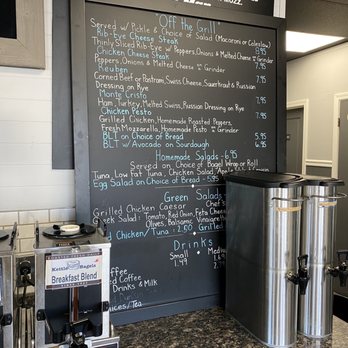 "Off the Grill"
Served w/ Pickle & Choice of Salad (Macaroni or Coleslaw)
Rib-Eye Cheese Steak 8.95
Thinly Sliced Rib-Eye w/ Peppers, Onions & Melted Cheese on Grinder
Chicken Cheese Steak 7.95
Peppers, Onions & Melted Cheese on Grinder
Reuben 7.95
Corned Beef or Pastrami, Swiss Cheese, Sauerkraut & Russian
Dressing on Rye
Monte Cristo 7.95
Ham, Turkey, Melted Swiss, Russian Dressing on Rye
Chicken Pesto 7.95
Grilled Chicken, Homemade Roasted Peppers,
Fresh Mozzarella, Homemade Pesto on Grinder
BLT on Choice of Bread 5.95
BLT w/ Avocado on Sourdough 6.95
Homemade Salads - 6.95
Served on Choice of Bagel, Wrap or Roll
Tuna, Low Fat Tuna, Chicken Salad
Egg Salad on Choice of Bread - 5.95
Green Salads
Grilled Chicken Caesar Chef
Greek Salad: Tomato, Red Onion, Feta Cheese
Olives, Balsamic Vinaigrette
Chicken/Tuna: 2.50 Grilled
Drinks
Small Med
1.49
Coffee
Iced Coffee
Drinks & Milk
Juices/Tea
Kettle Bagels
Breakfast Blend